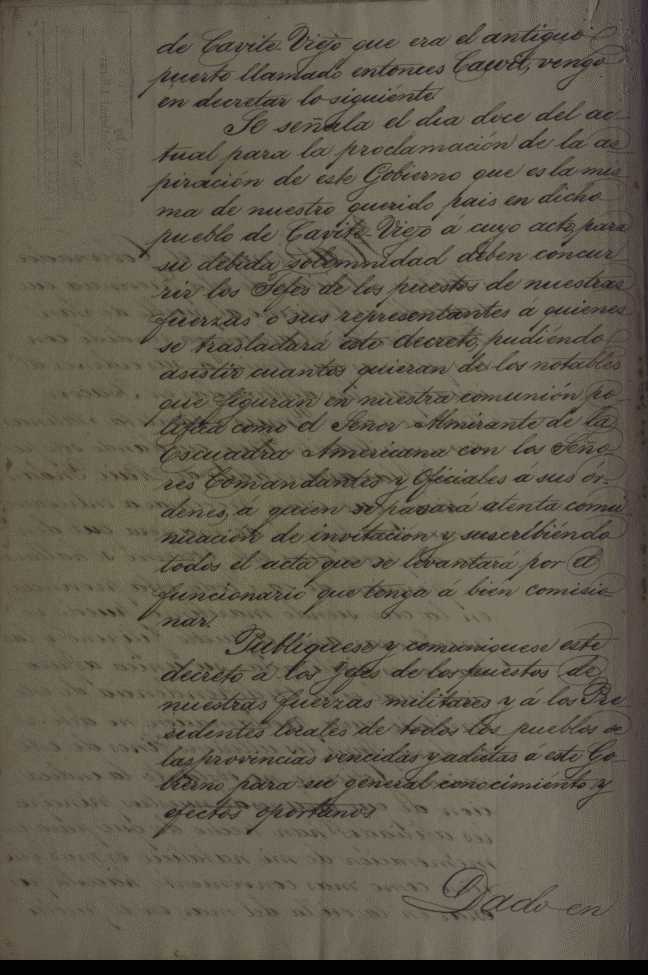 de Cavite-Viejo que era el antiguo
puerto llamado entonces Cawit, vengo
en decretar lo siguiente
Se señala el dia doce del ac-
tual para la proclamación de la as-
piración de este Gobierno que es la mis-
ma de nuestro querido pais en dicho
pueblo de Cavite-Viejo á cuyo acto, para
su debida solemnidad deben concur-
rir los Jefes de los puestos de nuestras
fuerzas ó sus representantes á quienes
se trasladará este decreto, pudiéndo
asistir cuantos quieran de los notables
que figuran en nuestra comunión po-
lítica como el Señor Almirante de la
Escuadra Americana con los Seño-
res Comandantes y Oficiales á sus ór-
denes, a quien se pasará atenta comu-
nicación de invitación y suscribiéndo
todos el acta que se levantará por el
funcionario que tenga á bien comisio-
nar.
Publíquese y comuniquese este
decreto á los Jefes de los puestos de
nuestras fuerzas militares y á los Pre-
sidentes locales de todos los pueblos de
las provincias vencidas y adictas á este Go-
bierno para su general conocimiento y
efectos oportunos
Dado en